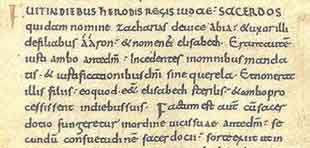 FUIT IN DIEBUS HERODIS REGIS IUDAEAE SACERDOS
quidam nomine zacharias de uice abia · & uxor illi
de filiabus aaron · & nomen ei elisabeth · Erant autem
iusti ambo ante dm · Incedentes in omnibus manda
tis · & iustificationibus dni sine querela · Et non erat
illis filius · eo quod · e& elisabeth sterilis · & ambo pro
cessissent in diebus suis · Factum est aute cu sacer
dotio fungeretur in ordine uicis suae ante dm · se
cundu consuetudine sacerdotii · sorte exiit ut in